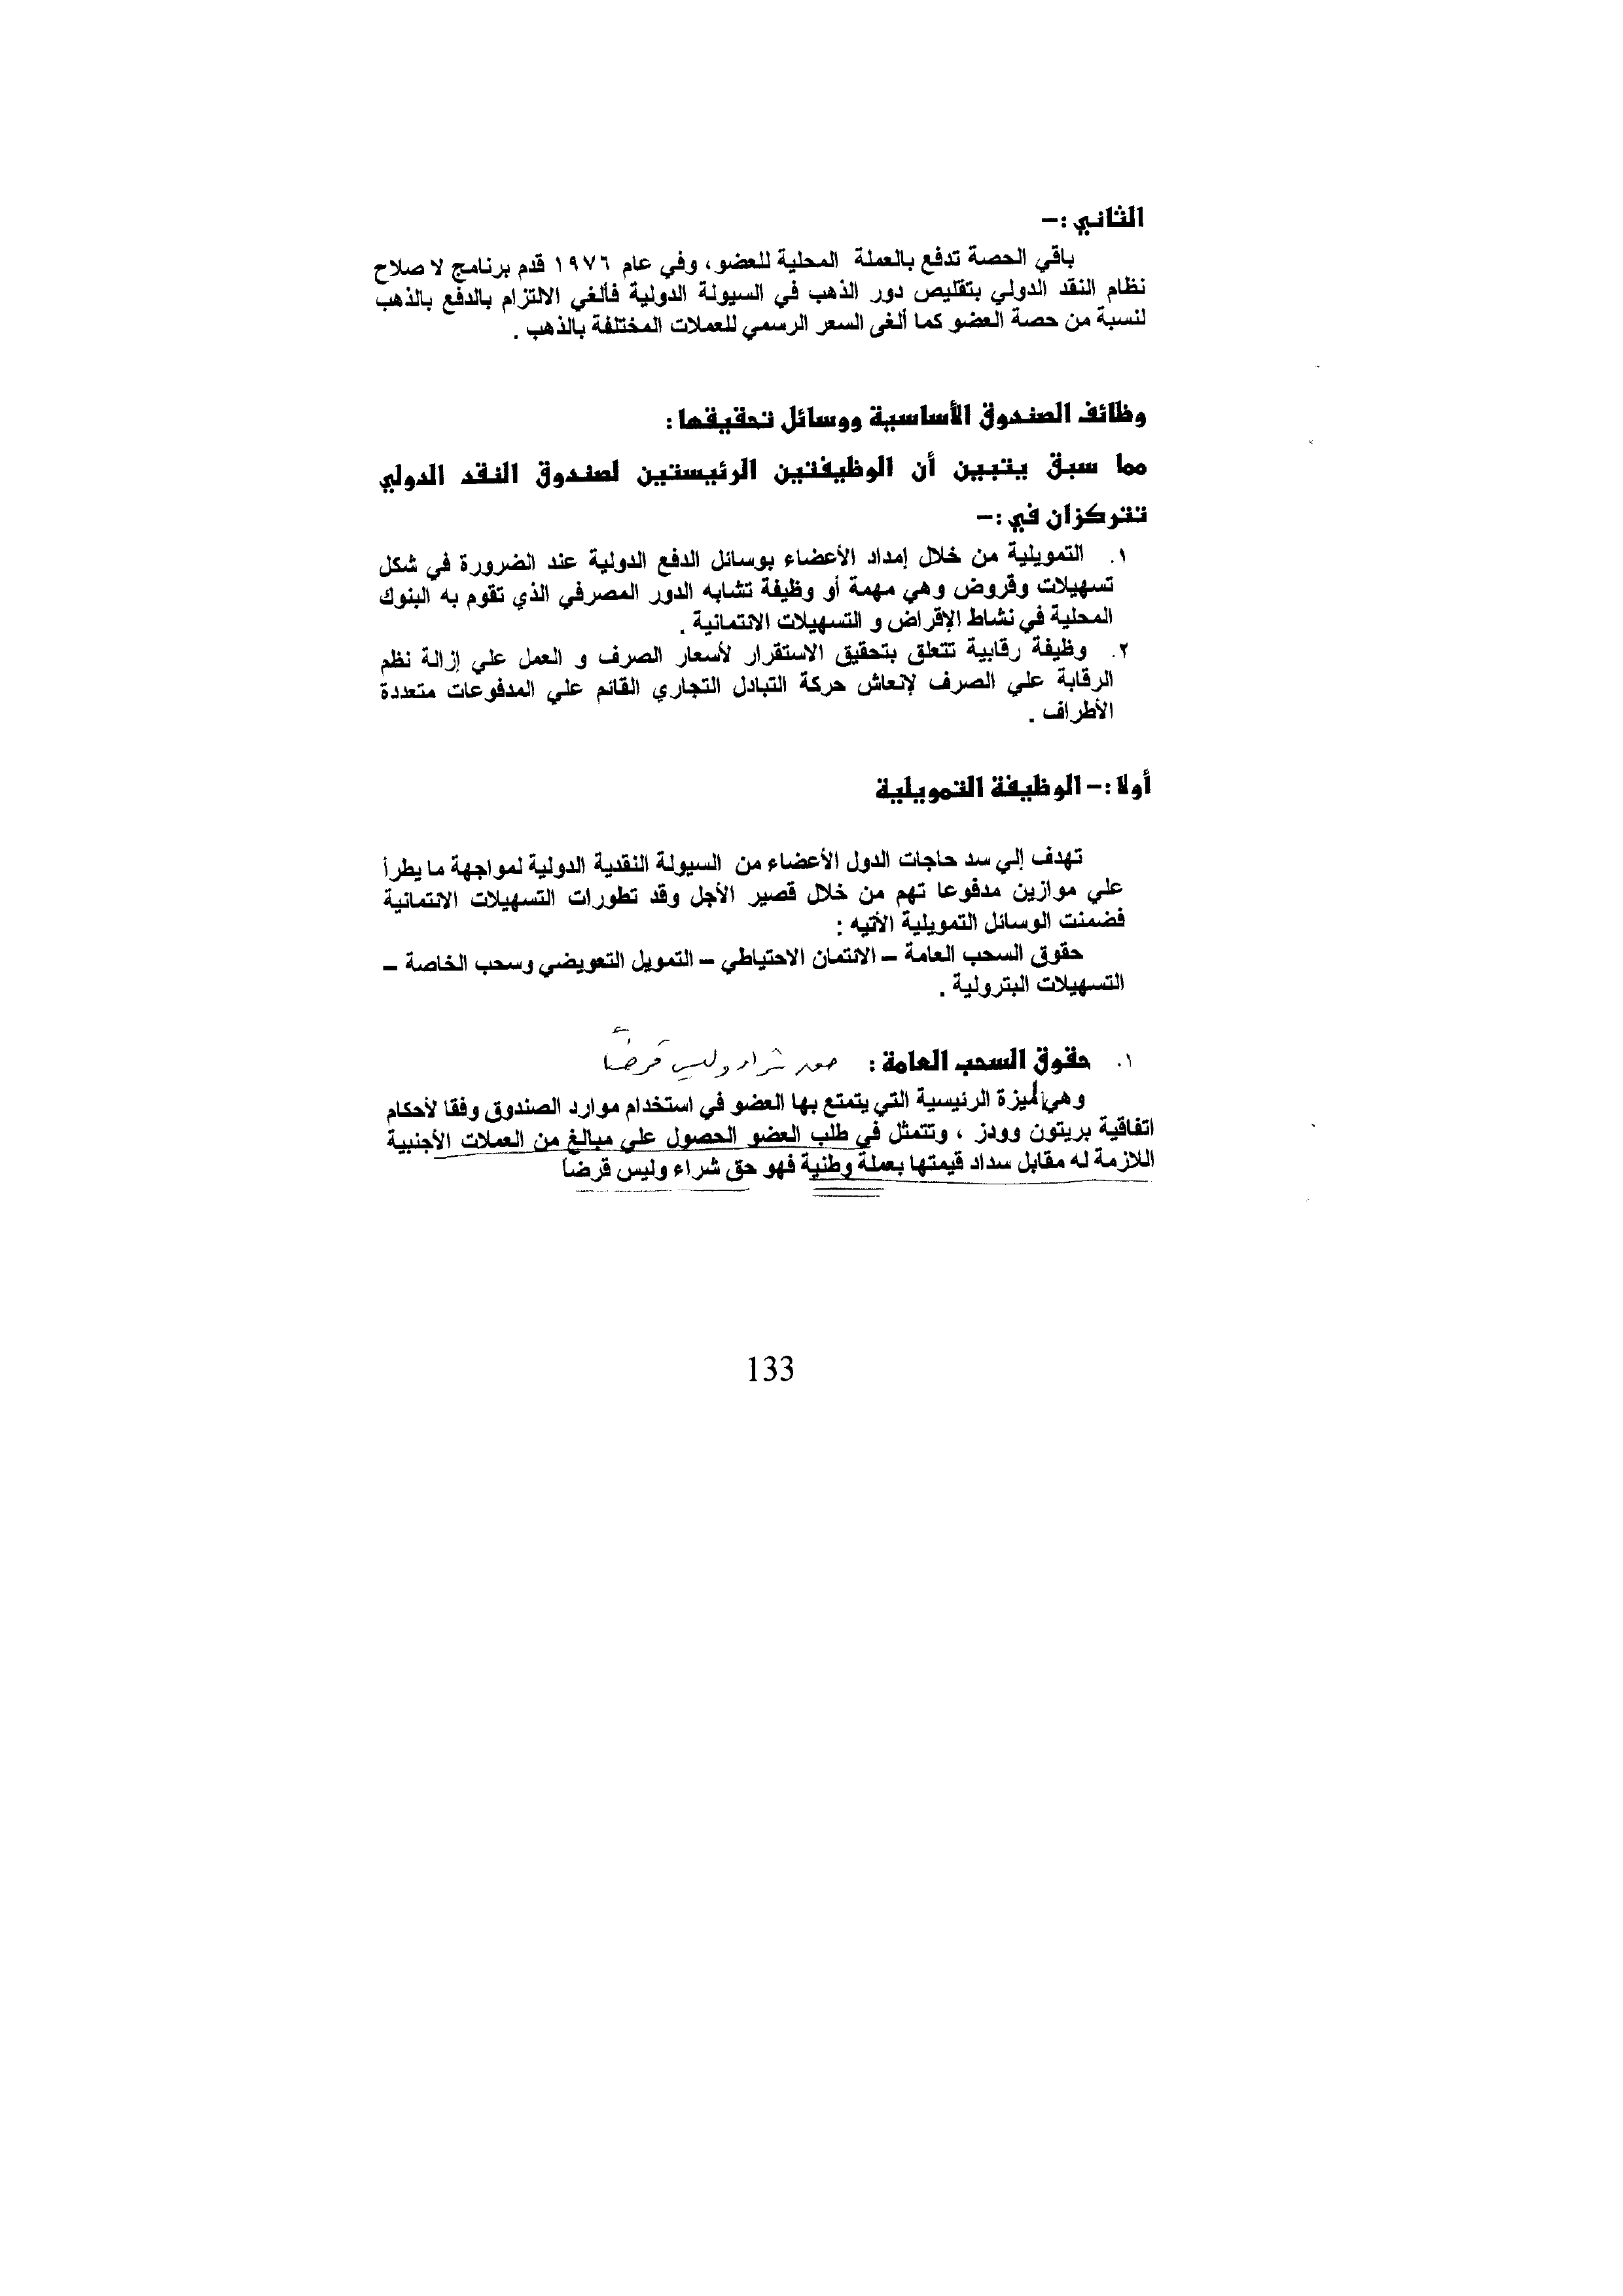 الثاني :–
باقي الحصة تدفع بالعملة المحلية للعضو، وفي عام ١٩٧٦ قدم برنامج لا صلاح
نظام النقد الدولي بتقليص دور الذهب في السيولة الدولية فألغي الالتزام بالدفع بالذهب
لنسبة من حصة العضو كما ألغى السعر الرسمي للعملات المختلفة بالذهب .
وظائف الصندوق الأساسية ووسائل تحقيقها :
مما سبق يتبين أن الوظيفتين الرئيستين لصندوق النقد الدولي
تتركزان في :–
١. التمويلية من خلال إمداد الأعضاء بوسائل الدفع الدولية عند الضرورة في شكل
تسهيلات وقروض وهي مهمة أو وظيفة تشابه الدور المصرفي الذي تقوم به البنوك
المحلية في نشاط الإقراض و التسهيلات الائتمانية .
٢. وظيفة رقابية تتعلق بتحقيق الاستقرار لأسعار الصرف و العمل علي إزالة نظم
الرقابة علي الصرف لإنعاش حركة التبادل التجاري القائم علي المدفوعات متعددة
الأطراف .
أولا :– الوظيفة التمويلية
تهدف إلي سد حاجات الدول الأعضاء من السيولة النقدية الدولية لمواجهة ما يطرأ
علي موازين مدفوعا تهم من خلال قصير الأجل وقد تطورات التسهيلات الائتمانية
فضمنت الوسائل التمويلية الأتيه :
حقوق السحب العامة – الائتمان الاحتياطي – التمويل التعويضي وسحب الخاصة –
التسهيلات البترولية .
١. حقوق السحب العامة : شراء وليس قرضاً
وهي الميزة الرئيسية التي يتمتع بها العضو في استخدام موارد الصندوق وفقا لأحكام
اتفاقية بريتون وودز ، وتتمثل في طلب العضو الحصول علي مبالغ من العملات الأجنبية
اللازمة له مقابل سداد قيمتها بعملة وطنية فهو حق شراء وليس قرضاً
133